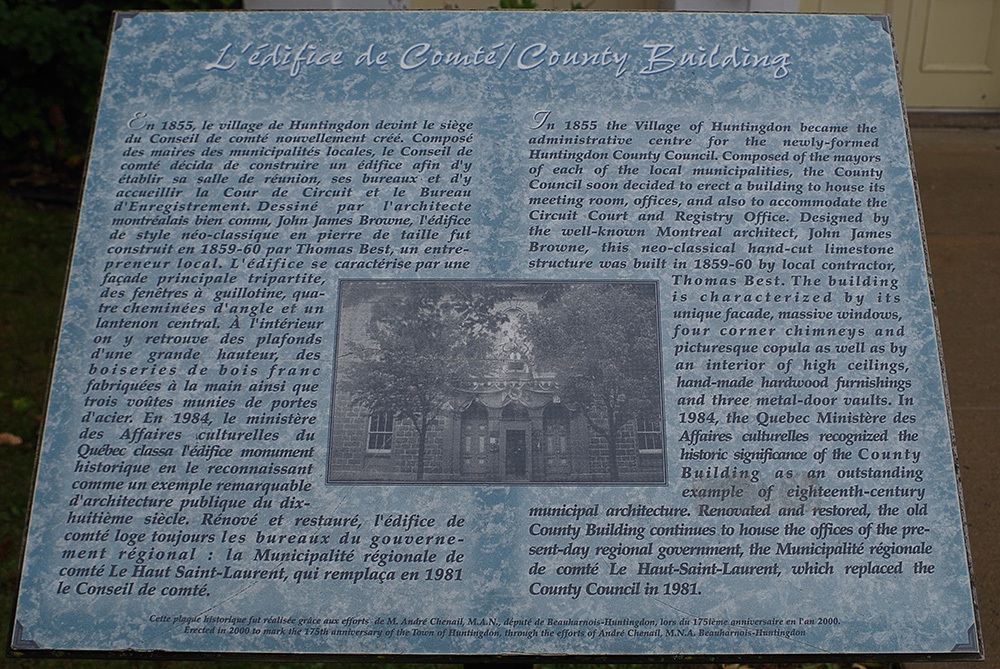 L'édifice de Comté/County Building
En 1855, le village de Huntingdon devint le siège
du Conseil de comté nouvellement créé. Composé
des maires des municipalités locales, le Conseil de
comté décida de construire un édifice afin d'y
établir sa salle de réunion, ses bureaux et d'y
accueillir la Cour de Circuit et le Bureau
d'Enregistrement. Dessiné par l'architecte
montréalais bien connu, John James Browne, l'édifice
de style néo-classique en pierre de taille fut
construit en 1859-60 par Thomas Best, un entre-
preneur local. L'édifice se caractérise par une
façade principale tripartite,
des fenêtres à guillotine, qua-
tre cheminées d'angle et un
lantenon central. À l'intérieur
on y retrouve des plafonds
d'une grande hauteur, des
boiseries de bois franc
fabriquées à la main ainsi que
trois voûtes munies de portes
d'acier. En 1984, le ministère
des Affaires culturelles du
Québec classa l'édifice monument
historique en le reconnaissant
comme un exemple remarquable
d'architecture publique du dix-
huitième siècle. Rénové et restauré, l'édifice de
comté loge toujours les bureaux du gouverne-
ment régional : la Municipalité régionale de
comté Le Haut Saint-Laurent, qui remplaça en 1981
le Conseil de comté.
In 1855 the Village of Huntingdon became the
administrative centre for the newly-formed
Huntingdon County Council. Composed of the mayors
of each of the local municipalities, the County
Council soon decided to erect a building to house its
meeting room, offices, and also to accommodate the
Circuit Court and Registry Office. Designed by
the well-known Montreal architect, John James
Browne, this neo-classical hand-cut limestone
structure was built in 1859-60 by local contractor,
Thomas Best. The building
is characterized by its
unique facade, massive windows,
four corner chimneys and
picturesque copula as well as by
an interior of high ceilings,
hand-made hardwood furnishings
and three metal-door vaults. In
1984, the Quebec Ministère des
Affaires culturelles recognized the
historic significance of the County
Building as an outstanding
example of eighteenth-century
municipal architecture. Renovated and restored, the old
County Building continues to house the offices of the pre-
sent-day regional government, the Municipalité régionale
de comté Le Haut-Saint-Laurent, which replaced the
County Council in 1981.
Cette plaque historique fut réalisée grâce aux efforts de M. André Chenail, M.A.N., député de Beauharnois-Huntingdon, lors du 175ième anniversaire en l'an 2000.
Erected in 2000 to mark the 175th anniversary of the Town of Huntingdon, through the efforts of André Chenail, M.N.A. Beauharnois-Huntingdon